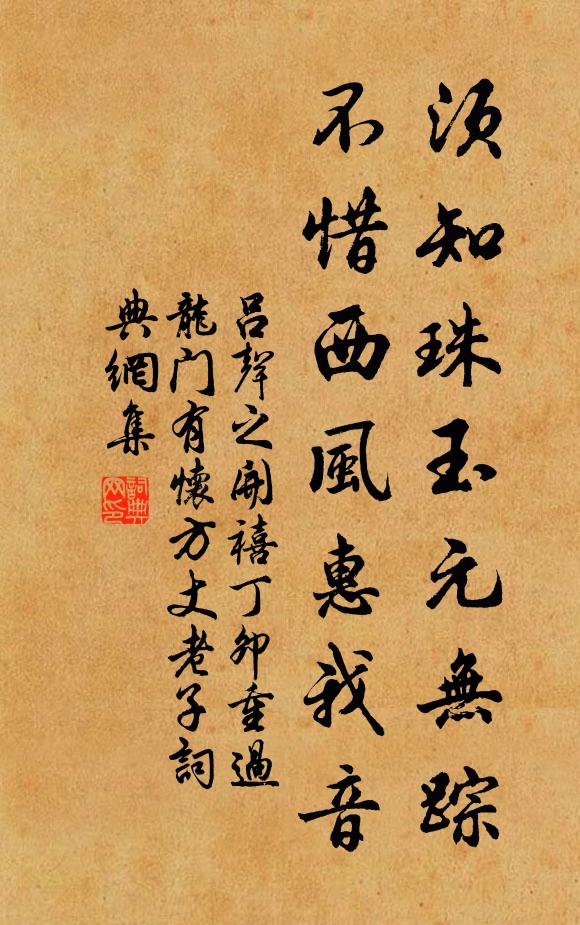 須知珠玉元無踪
不惜西風惠我音
呂聲之開禧丁卯重過
龍门有懷方丈老子詞
典網集
詞典
网印